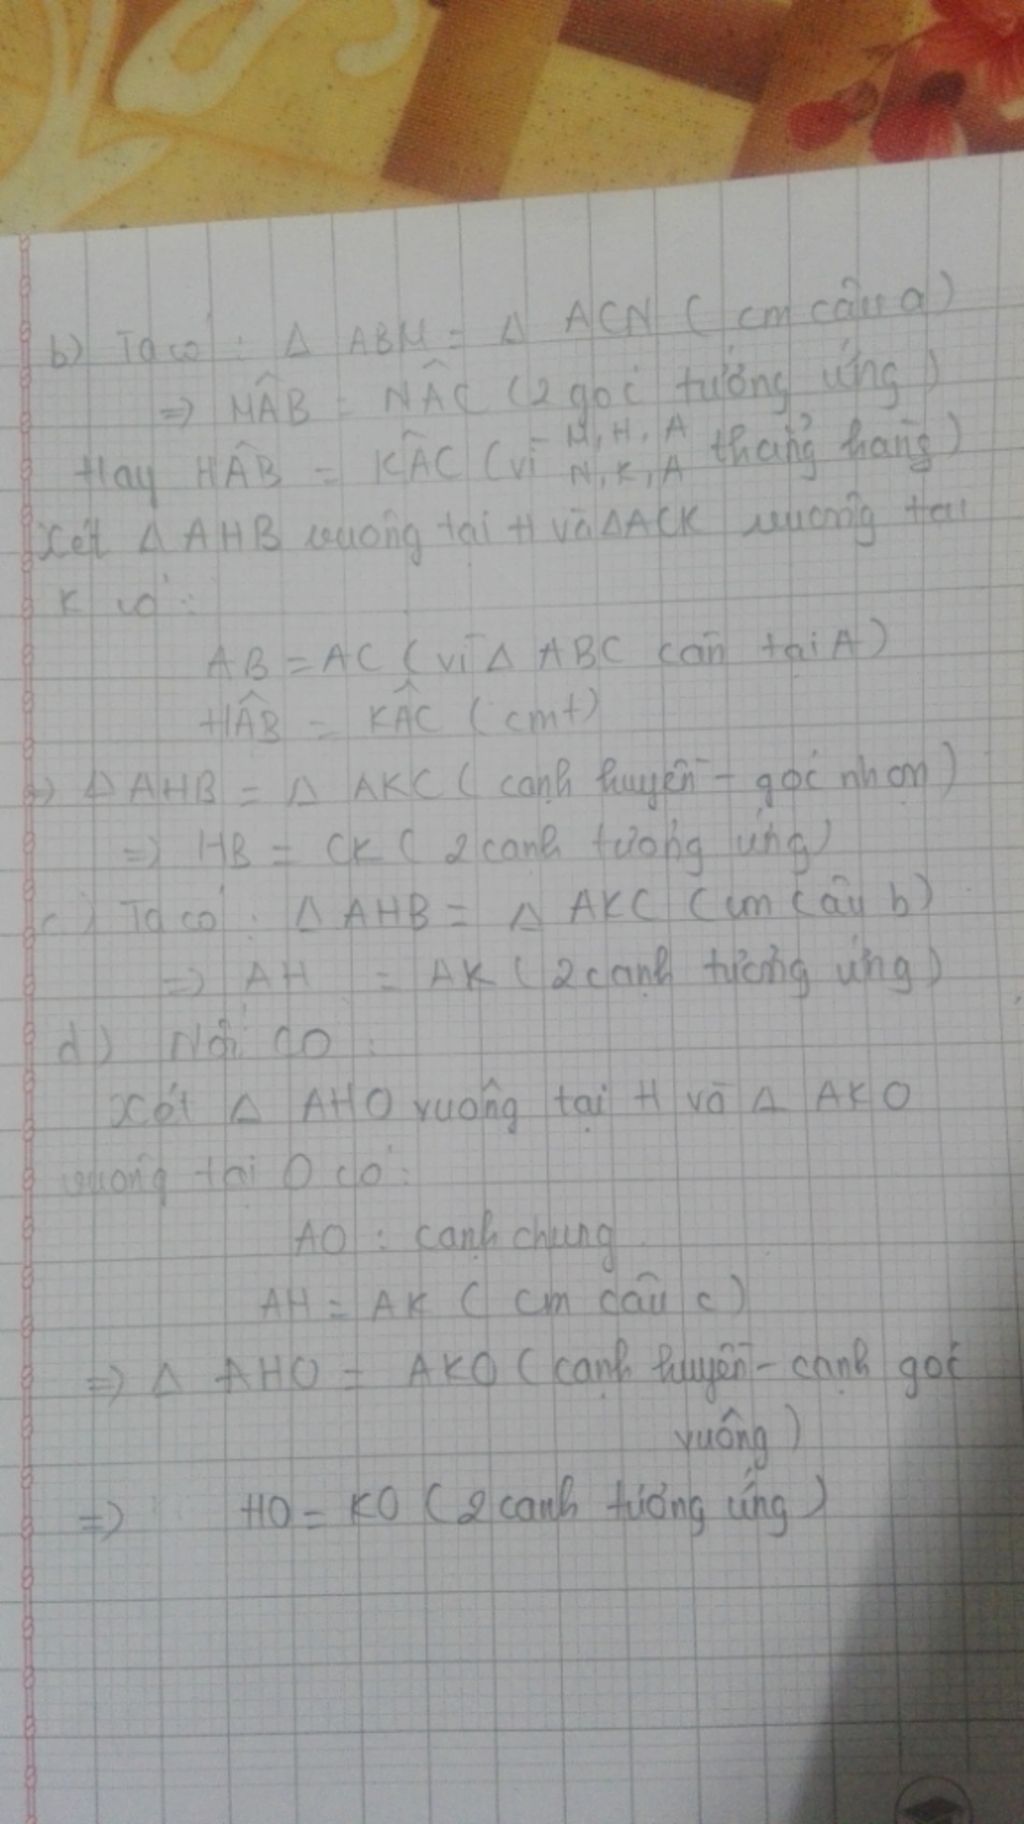 b) Ta có : Δ ABM = Δ ACN ( cm câu a)
=> MÂB = NÂC (2 góc tương ứng)
Hay HÂB = KÂC (vì M, H, A N, K, A thẳng hàng)
Xét Δ AHB vuông tại H và Δ ACK vuông tại
K có :
AB = AC ( vì Δ ABC cân tại A)
HÂB = KÂC ( cmt)
=> Δ AHB = Δ AKC ( cạnh huyền - góc nhọn)
=> HB = CK ( 2 cạnh tương ứng)
c) Ta có : Δ AHB = Δ AKC ( cm câu b)
=> AH = AK ( 2 cạnh tương ứng)
d) Nối
Xét Δ AHO vuông tại H và Δ AKO
vuông tại O có :
AO : cạnh chung
AH = AK ( cm câu c)
=> Δ AHO = AKO ( cạnh huyền - cạnh góc
vuông)
=> HO = KO ( 2 cạnh tương ứng)